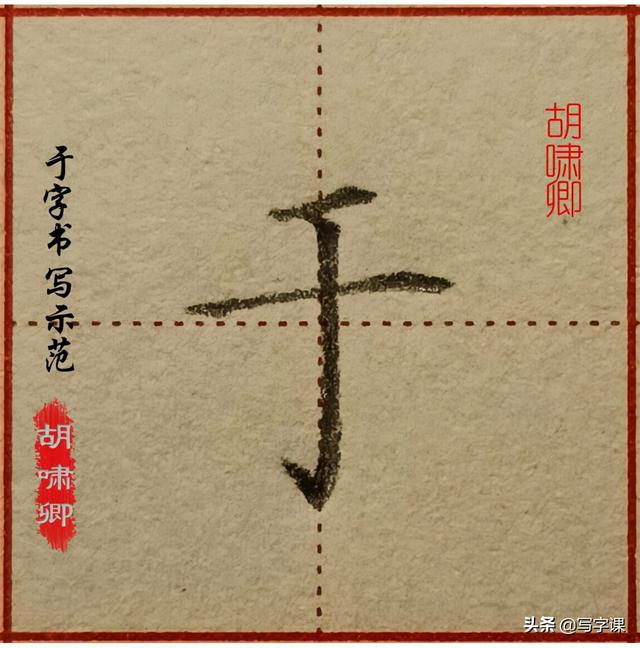 于字书写示范
胡啸卿
于
胡啸卿
头条 @写字课